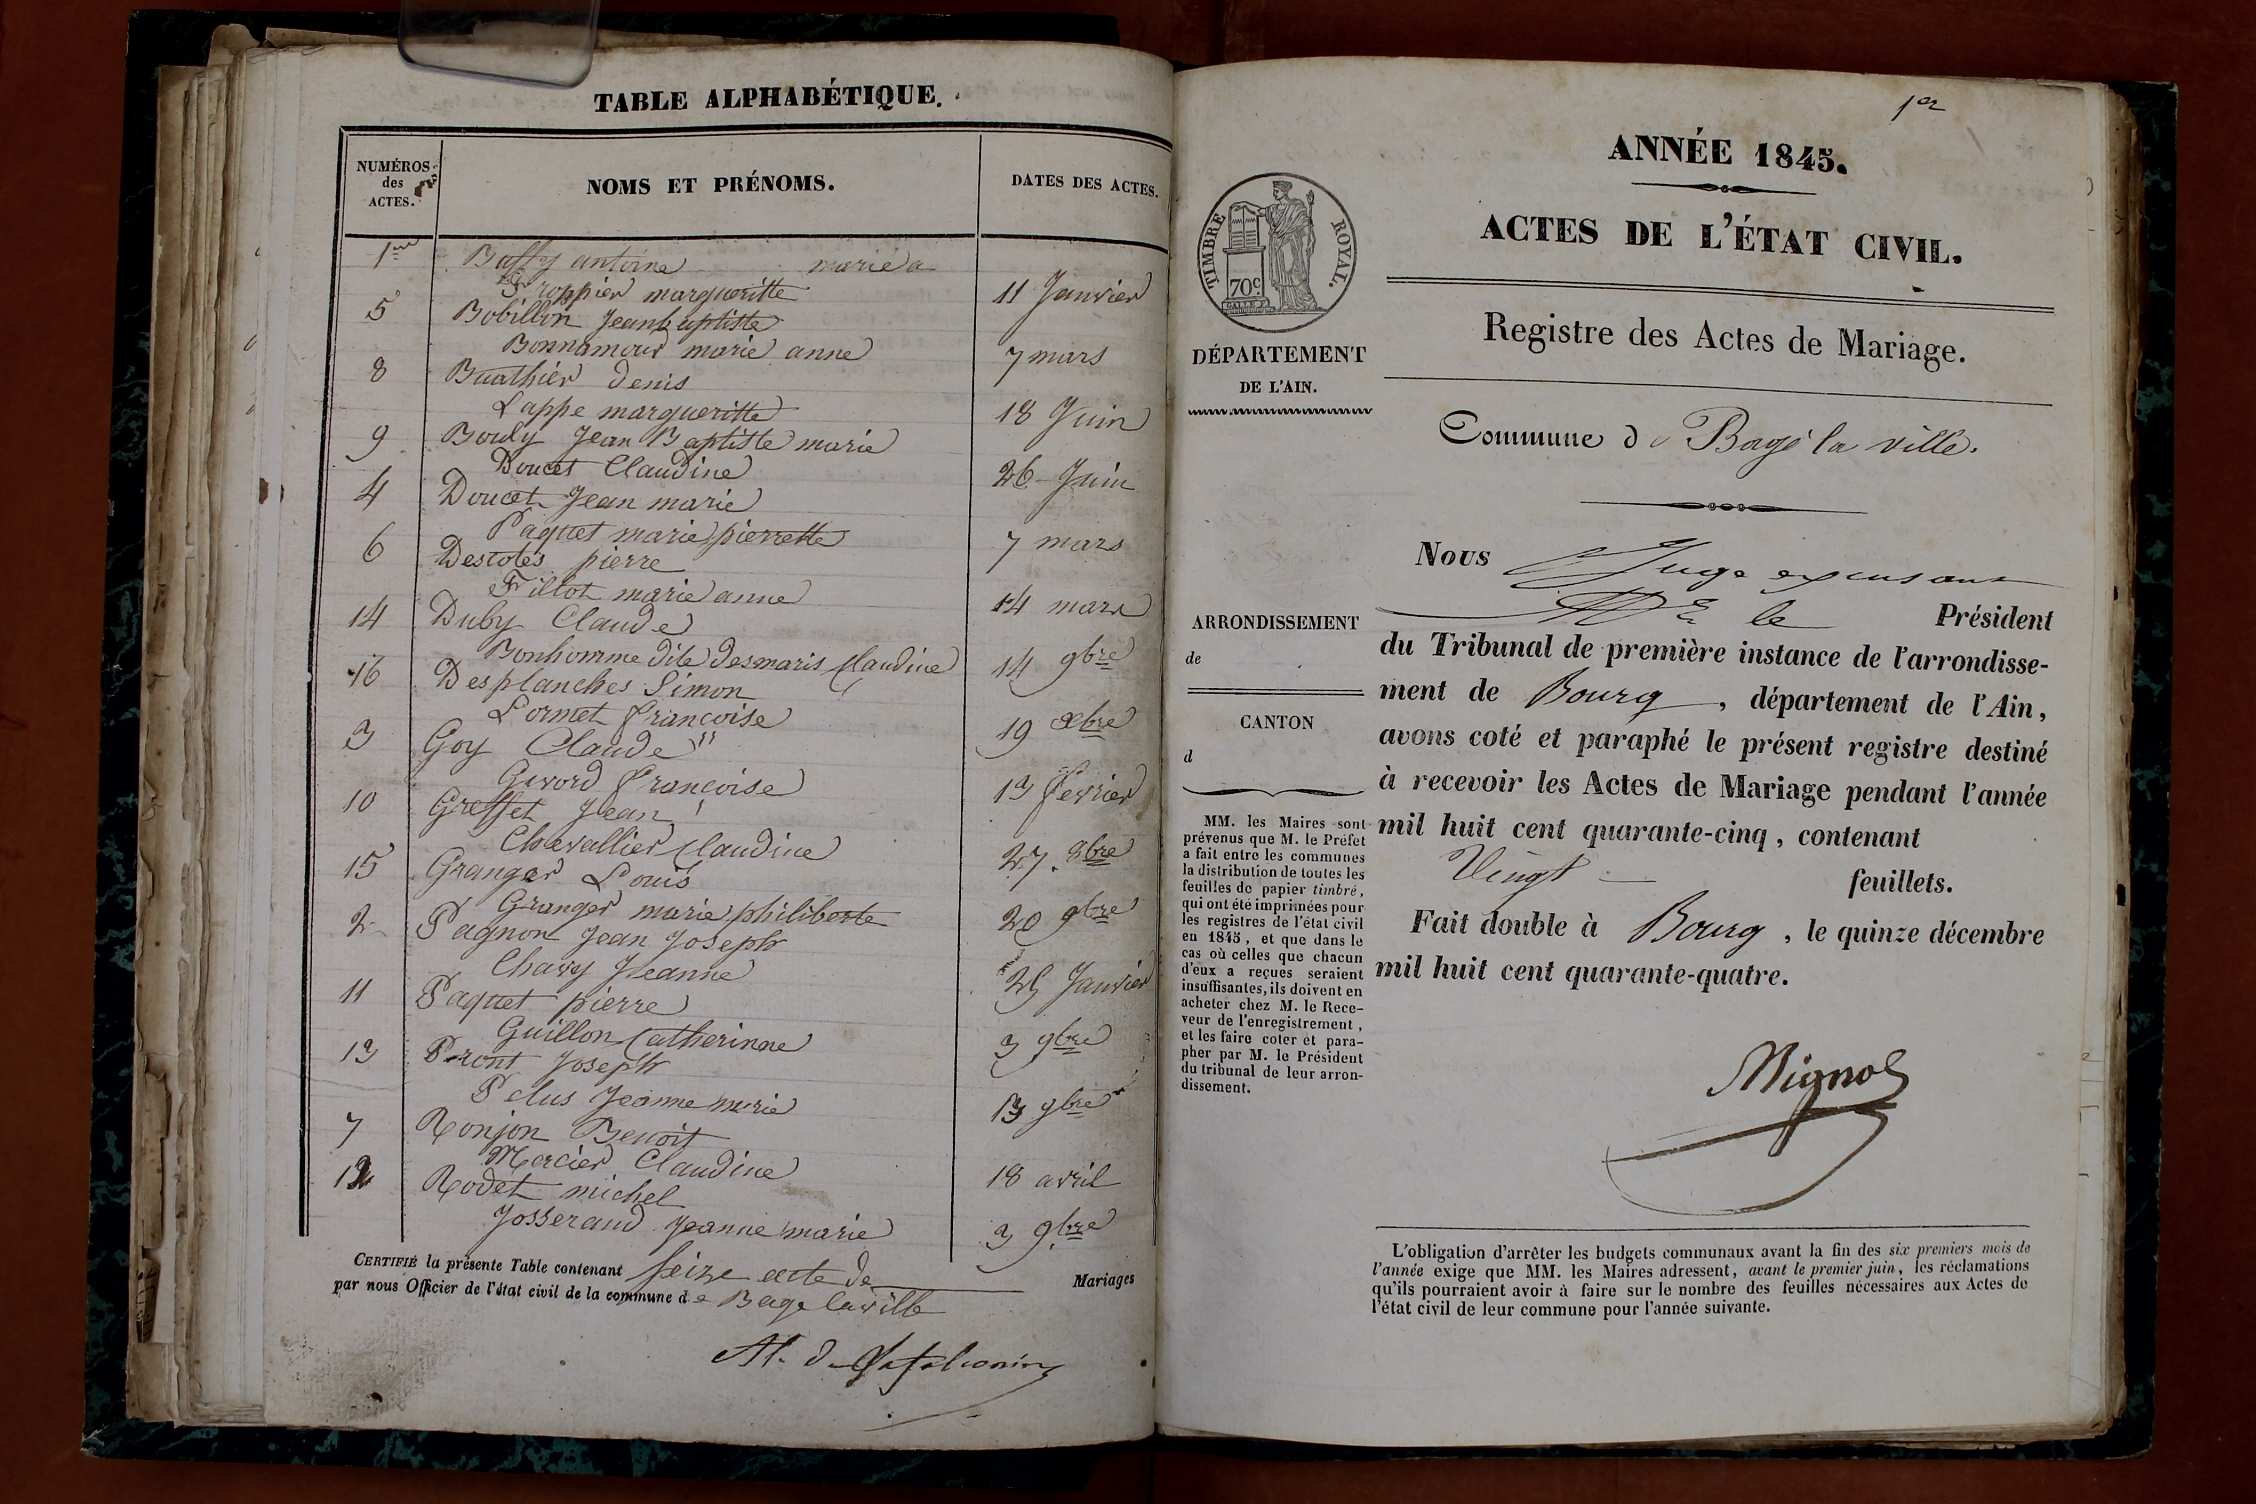 TABLE ALPHABÉTIQUE.
NUMÉROS des ACTES.
NOMS ET PRÉNOMS.
DATES DES ACTES.
1er Buffy antoine marié a
Groppier margueritte 11 Janvier
5 Bobillon Jean baptiste
Bonnamour marie anne 7 mars
8 Buathier denis
Lappe margueritte 18 Juin
9 Bouly Jean Baptiste marie
Doucet Claudine 26 Juin
4 Doucet Jean marie
Paquet marie pierrette 7 mars
6 Destotes pierre
Fillot marie anne 14 mars
14 Duby Claude
Bonhomme dite desmaris Claudine 14 9bre
16 Desplanches Simon
Lormet françoise 19 xbre
3 Goy Claude
Givord françoise 13 fevrier
10 Greffet Jean
Chevallier Claudine 27 8bre
15 Granger Louis
Granger marie philiberte 20 9bre
2 Pagnon Jean Joseph
Chavy Jeanne 25 Janvier
11 Paquet pierre
Guillon Catherinne 3 9bre
13 Pront Joseph
Pelus Jeanne marie 13 9bre
7 Ronjon Benoit
Mercier Claudine 18 avril
12 Rodet michel
Josserand Jeanne marie 3 9bre
CERTIFIÉ la présente Table contenant seize acte de Mariages
par nous Officier de l'état civil de la commune de Bage la ville
1er
ANNÉE 1845.
ACTES DE L'ÉTAT CIVIL.
TIMBRE ROYAL.
70c.
DÉPARTEMENT
DE L'AIN.
Registre des Actes de Mariage.
Commune de Bagé la ville.
ARRONDISSEMENT
de
CANTON
d
MM. les Maires sont
prévenus que M. le Préfet
a fait entre les communes
la distribution de toutes les
feuilles de papier timbré,
qui ont été imprimées pour
les registres de l'état civil
en 1845, et que dans le
cas où celles que chacun
d'eux a reçues seraient
insuffisantes, ils doivent en
acheter chez M. le Rece-
veur de l'enregistrement,
et les faire coter et para-
pher par M. le Président
du tribunal de leur arron-
dissement.
Nous Juge
le Président
du Tribunal de première instance de l'arrondisse-
ment de Bourg, département de l'Ain,
avons coté et paraphé le présent registre destiné
à recevoir les Actes de Mariage pendant l'année
mil huit cent quarante-cinq, contenant
Vingt feuillets.
Fait double à Bourg, le quinze décembre
mil huit cent quarante-quatre.
L'obligation d'arrêter les budgets communaux avant la fin des six premiers mois de
l'année exige que MM. les Maires adressent, avant le premier juin, les réclamations
qu'ils pourraient avoir à faire sur le nombre des feuilles nécessaires aux Actes de
l'état civil de leur commune pour l'année suivante.